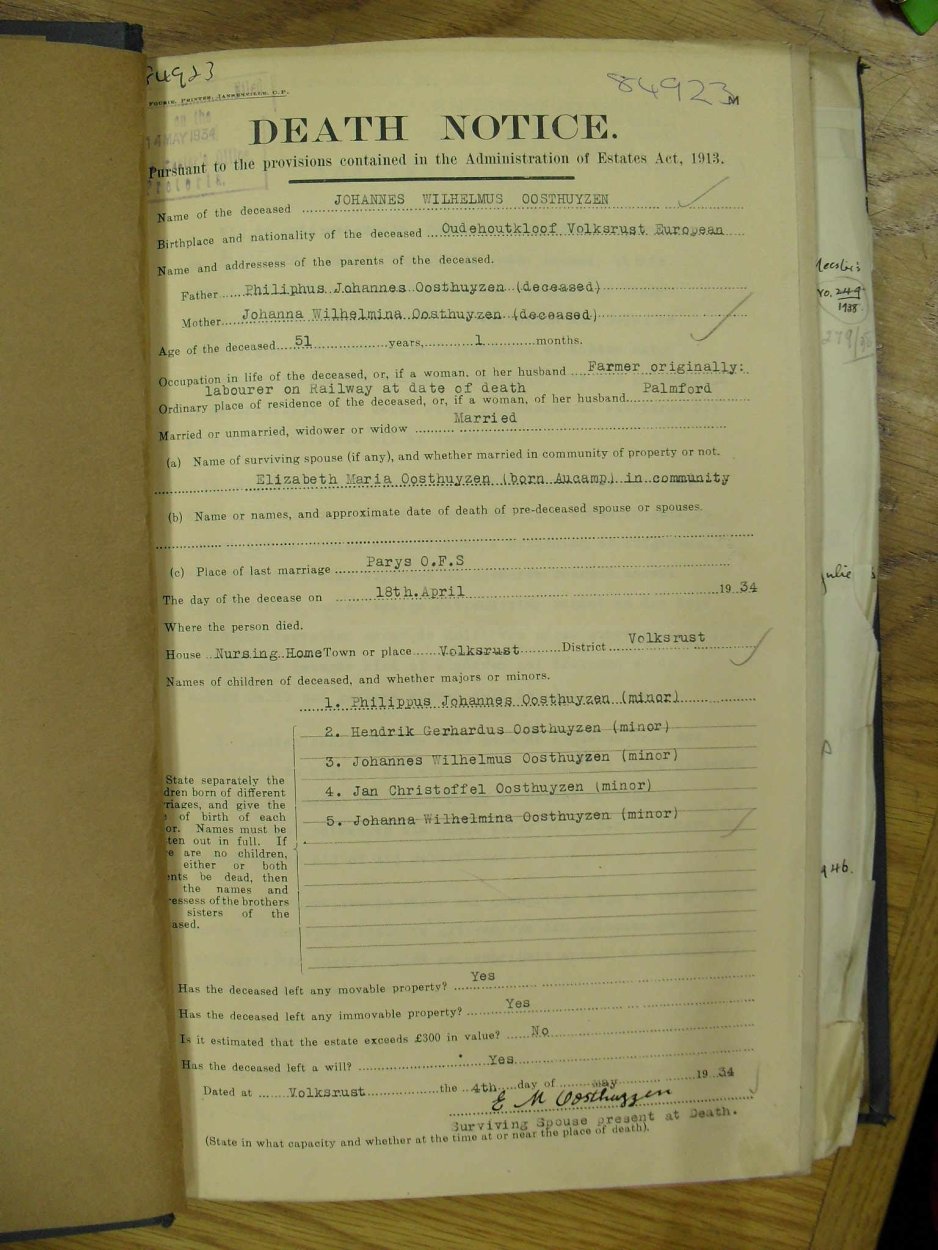 84923
84923
M
FOURIE, PRINTER, JANSENVILLE, C.P.
on the
14 MAY 1934
DEATH NOTICE.
Pursuant to the provisions contained in the Administration of Estates Act, 1913.
Name of the deceased JOHANNES WILHELMUS OOSTHUYZEN
Birthplace and nationality of the deceased Oudehoutkloof Volksrust European
Name and addressess of the parents of the deceased.
Father Philiphus Johannes Oosthuyzen (deceased)
Mother Johanna Wilhelmina Oosthuyzen (deceased)
Age of the deceased 51 years, 1 months.
Occupation in life of the deceased, or, if a woman, of her husband Farmer originally:
labourer on Railway at date of death Palmford
Ordinary place of residence of the deceased, or, if a woman, of her husband
Married or unmarried, widower or widow Married
(a) Name of surviving spouse (if any), and whether married in community of property or not.
Elizabeth Maria Oosthuyzen (born Aucamp) in community
(b) Name or names, and approximate date of death of pre-deceased spouse or spouses.
(c) Place of last marriage Parys O.F.S
The day of the decease on 18th. April 19 34
Where the person died.
House Nursing Home Town or place Volksrust District Volksrust
Names of children of deceased, and whether majors or minors.
1. Philippus Johannes Oosthuyzen (minor)
2. Hendrik Gerhardus Oosthuyzen (minor)
3. Johannes Wilhelmus Oosthuyzen (minor)
4. Jan Christoffel Oosthuyzen (minor)
5. Johanna Wilhelmina Oosthuyzen (minor)
State separately the
dren born of different
riages, and give the
of birth of each
or. Names must be
ten out in full. If
e are no children,
either or both
nts be dead, then
the names and
ressess of the brothers
sisters of the
ased.
Has the deceased left any movable property? Yes
Has the deceased left any immovable property? Yes
Is it estimated that the estate exceeds £300 in value? No
Has the deceased left a will? Yes
Dated at Volksrust the 4th day of May 19 34
E M Oosthuyzen
Surviving Spouse present at Death.
(State in what capacity and whether at the time at or near the place of death).
249
1938
279/38
julie
946.